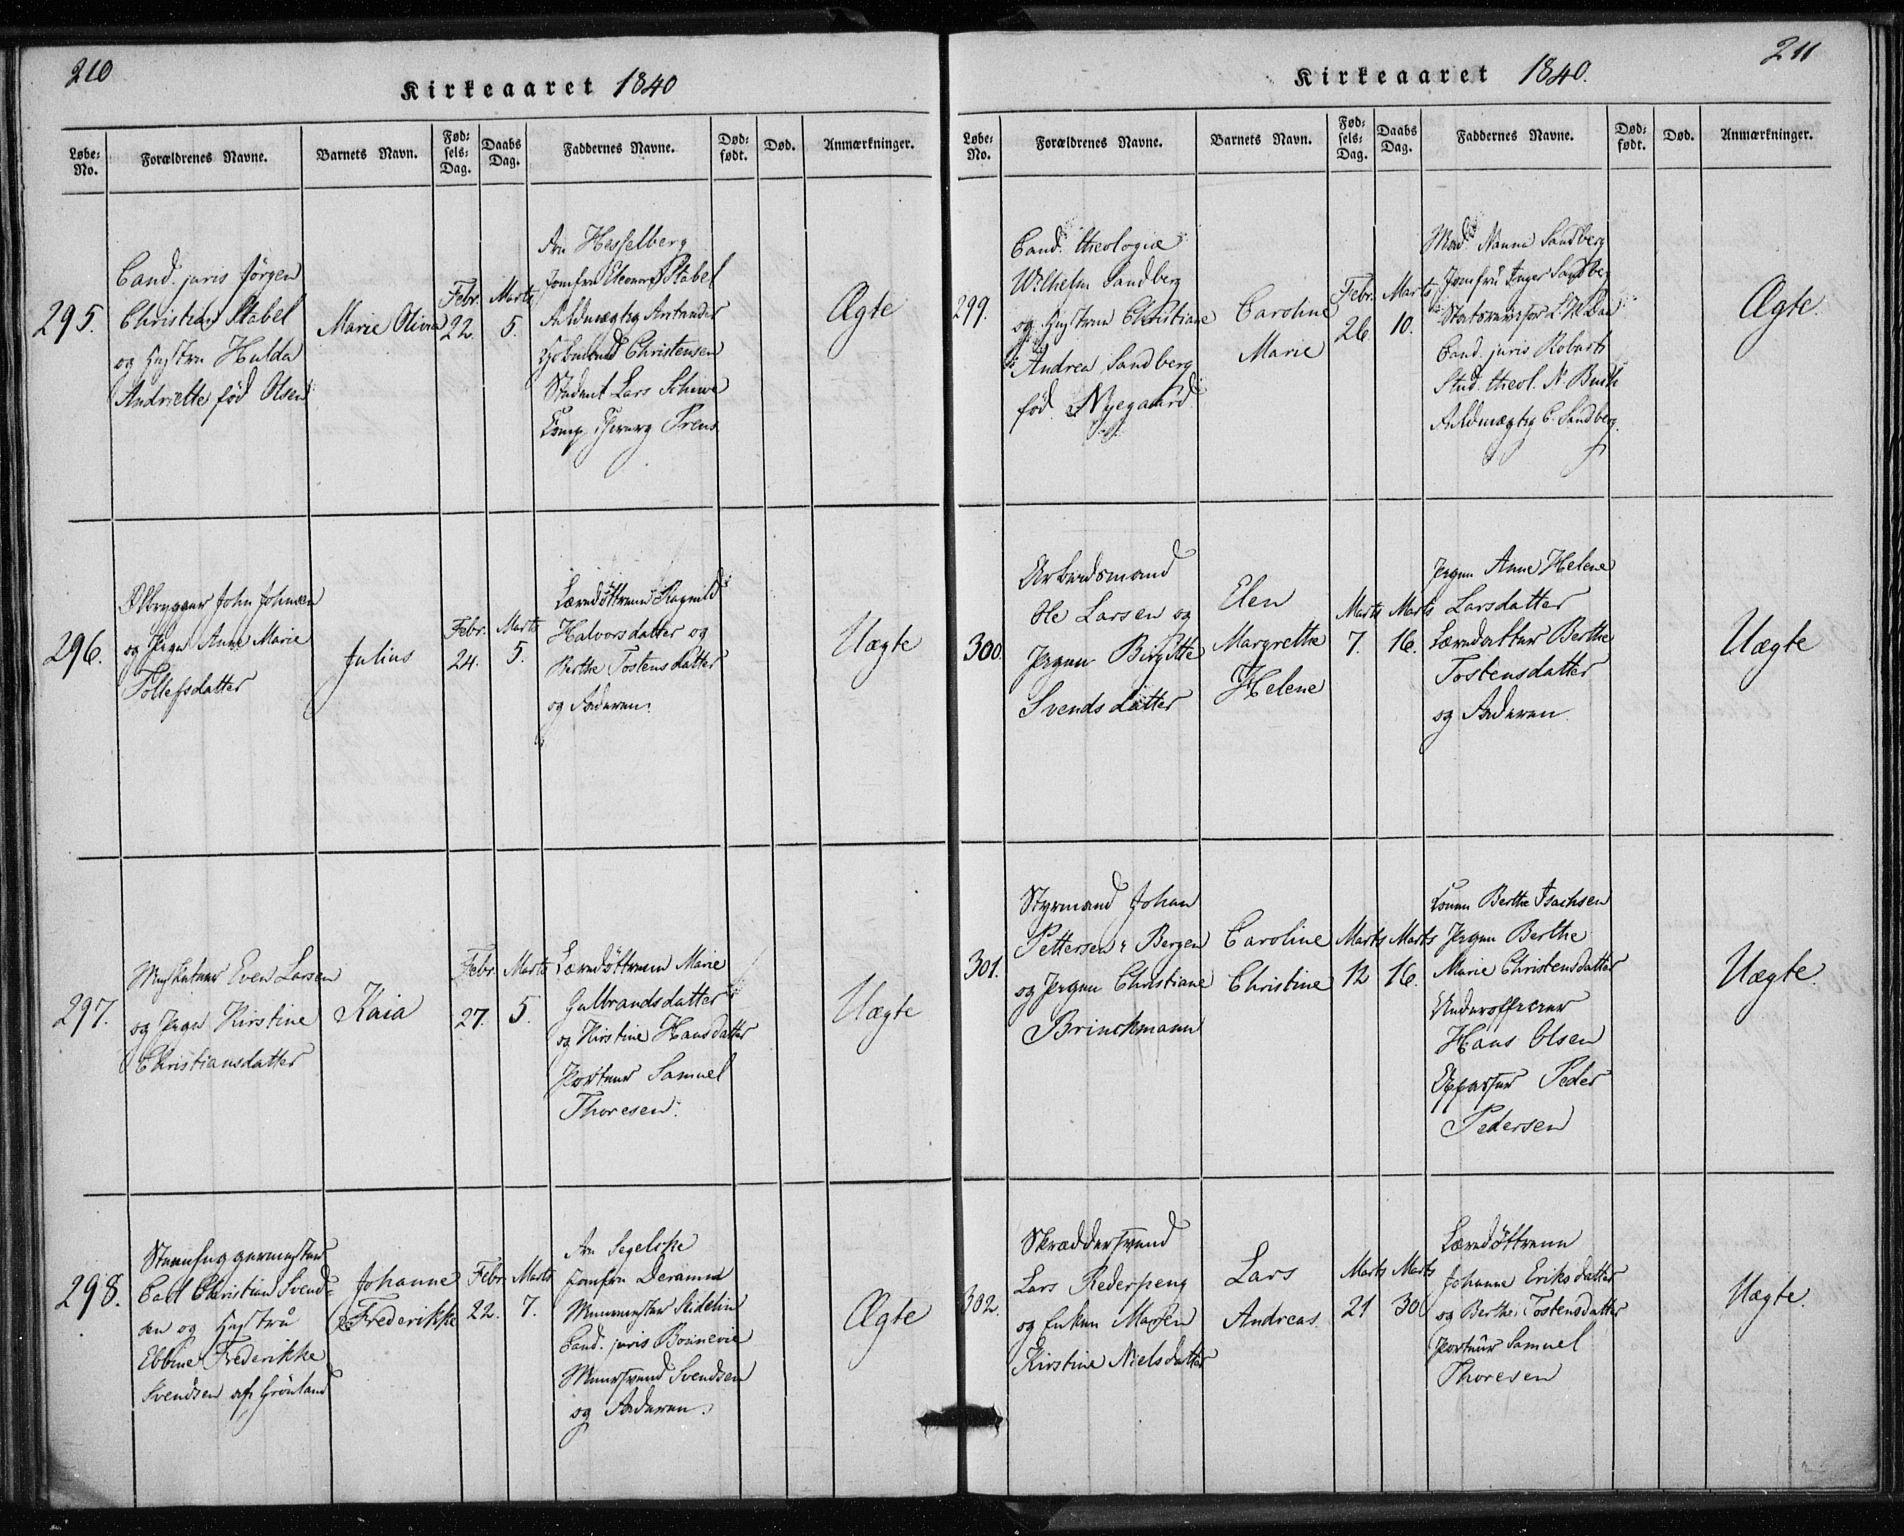 210
Kirkeaaret 1840
Løbe-No.
Forældrenes Navne.
Barnets Navn.
Fødsels-Dag.
Daabs Dag.
Faddernes Navne.
Dødfødt.
Død.
Anmærkninger.
295.
Cand. juris Jörgen
Christian Stabel
og Hustru Hulda
Andriette föd Olsen
Marie Olivia
Febr. 22.
Marts 5.
Hesselberg
Jomfru Stabel
Christensen
Student Lars
Ægte
296.
Ølbrygger John Johnsen
og Pigen Anne Marie
Tollefsdatter
Julius
Febr. 24.
Marts 5.
Læredöttrene Ragnild
Halvorsdatter og
Berthe Tostensdatter
og Faderen.
Uægte
297.
Musketeer Even Larsen
og Pigen Kirstine
Christiansdatter
Kaia
Febr. 27.
Marts 5.
Læredöttrene Marie
Gulbrandsdatter
og Kirstine Hansdatter
Porteur Samuel
Thoresen.
Uægte
298.
Steenhuggermester
Carl Christian Svend-
sen og Hustru
Ebbine Frederikke
Svendsen af Grönland
Johanne
Frederikke
Febr. 22.
Marts 7.
Segelcke
Jomfru
Muurmester
Cand. juris Bonnevie
Muursvend Svendsen
og Faderen.
Ægte
211
Kirkeaaret 1840.
Løbe-No.
Forældrenes Navne.
Barnets Navn.
Fødsels-Dag.
Daabs Dag.
Faddernes Navne.
Dødfødt.
Død.
Anmærkninger.
299.
Cand. theologiæ
Wilhelm Sandberg
og Hustrue Christiane
Andrea Sandberg
föd Nyegaard
Caroline
Marie
Febr. 26
Marts 10.
Mad. Nanna Sandberg
Jomfru Inger Sandberg
Statsrevisor
Cand. juris Robart
Stud. theol. N.
Fuldmægtig C. Sandberg.
Ægte.
300.
Arbeidsmand
Ole Larsen og
Pigen Birgitte
Svendsdatter
Elen
Margrethe
Helene
Marts 7.
Marts 16.
Pigen Anne Helene
Larsdatter
Læredatter Berthe
Tostensdatter
og Faderen
Uægte
301.
Styrmand Johan
Pettersen i Bergen
og Pigen Christiane
Brinckmann
Caroline
Christine
Marts 12
Marts 16.
Konen Berthe Isachsen
Pigen Berthe
Marie Christensdatter
Underofficeer
Hans Olsen
Oppasser Peder
Pedersen
Uægte.
302.
Skræddersvend
Lars Rederpeng
og Enken Maren
Kirstine Nielsdatter
Lars
Andreas.
Marts 21
Marts 30
Læredöttrene
Johanne Eriksdatter
og Berthe Tostensdatter
Porteur Samuel
Thoresen
Uægte.